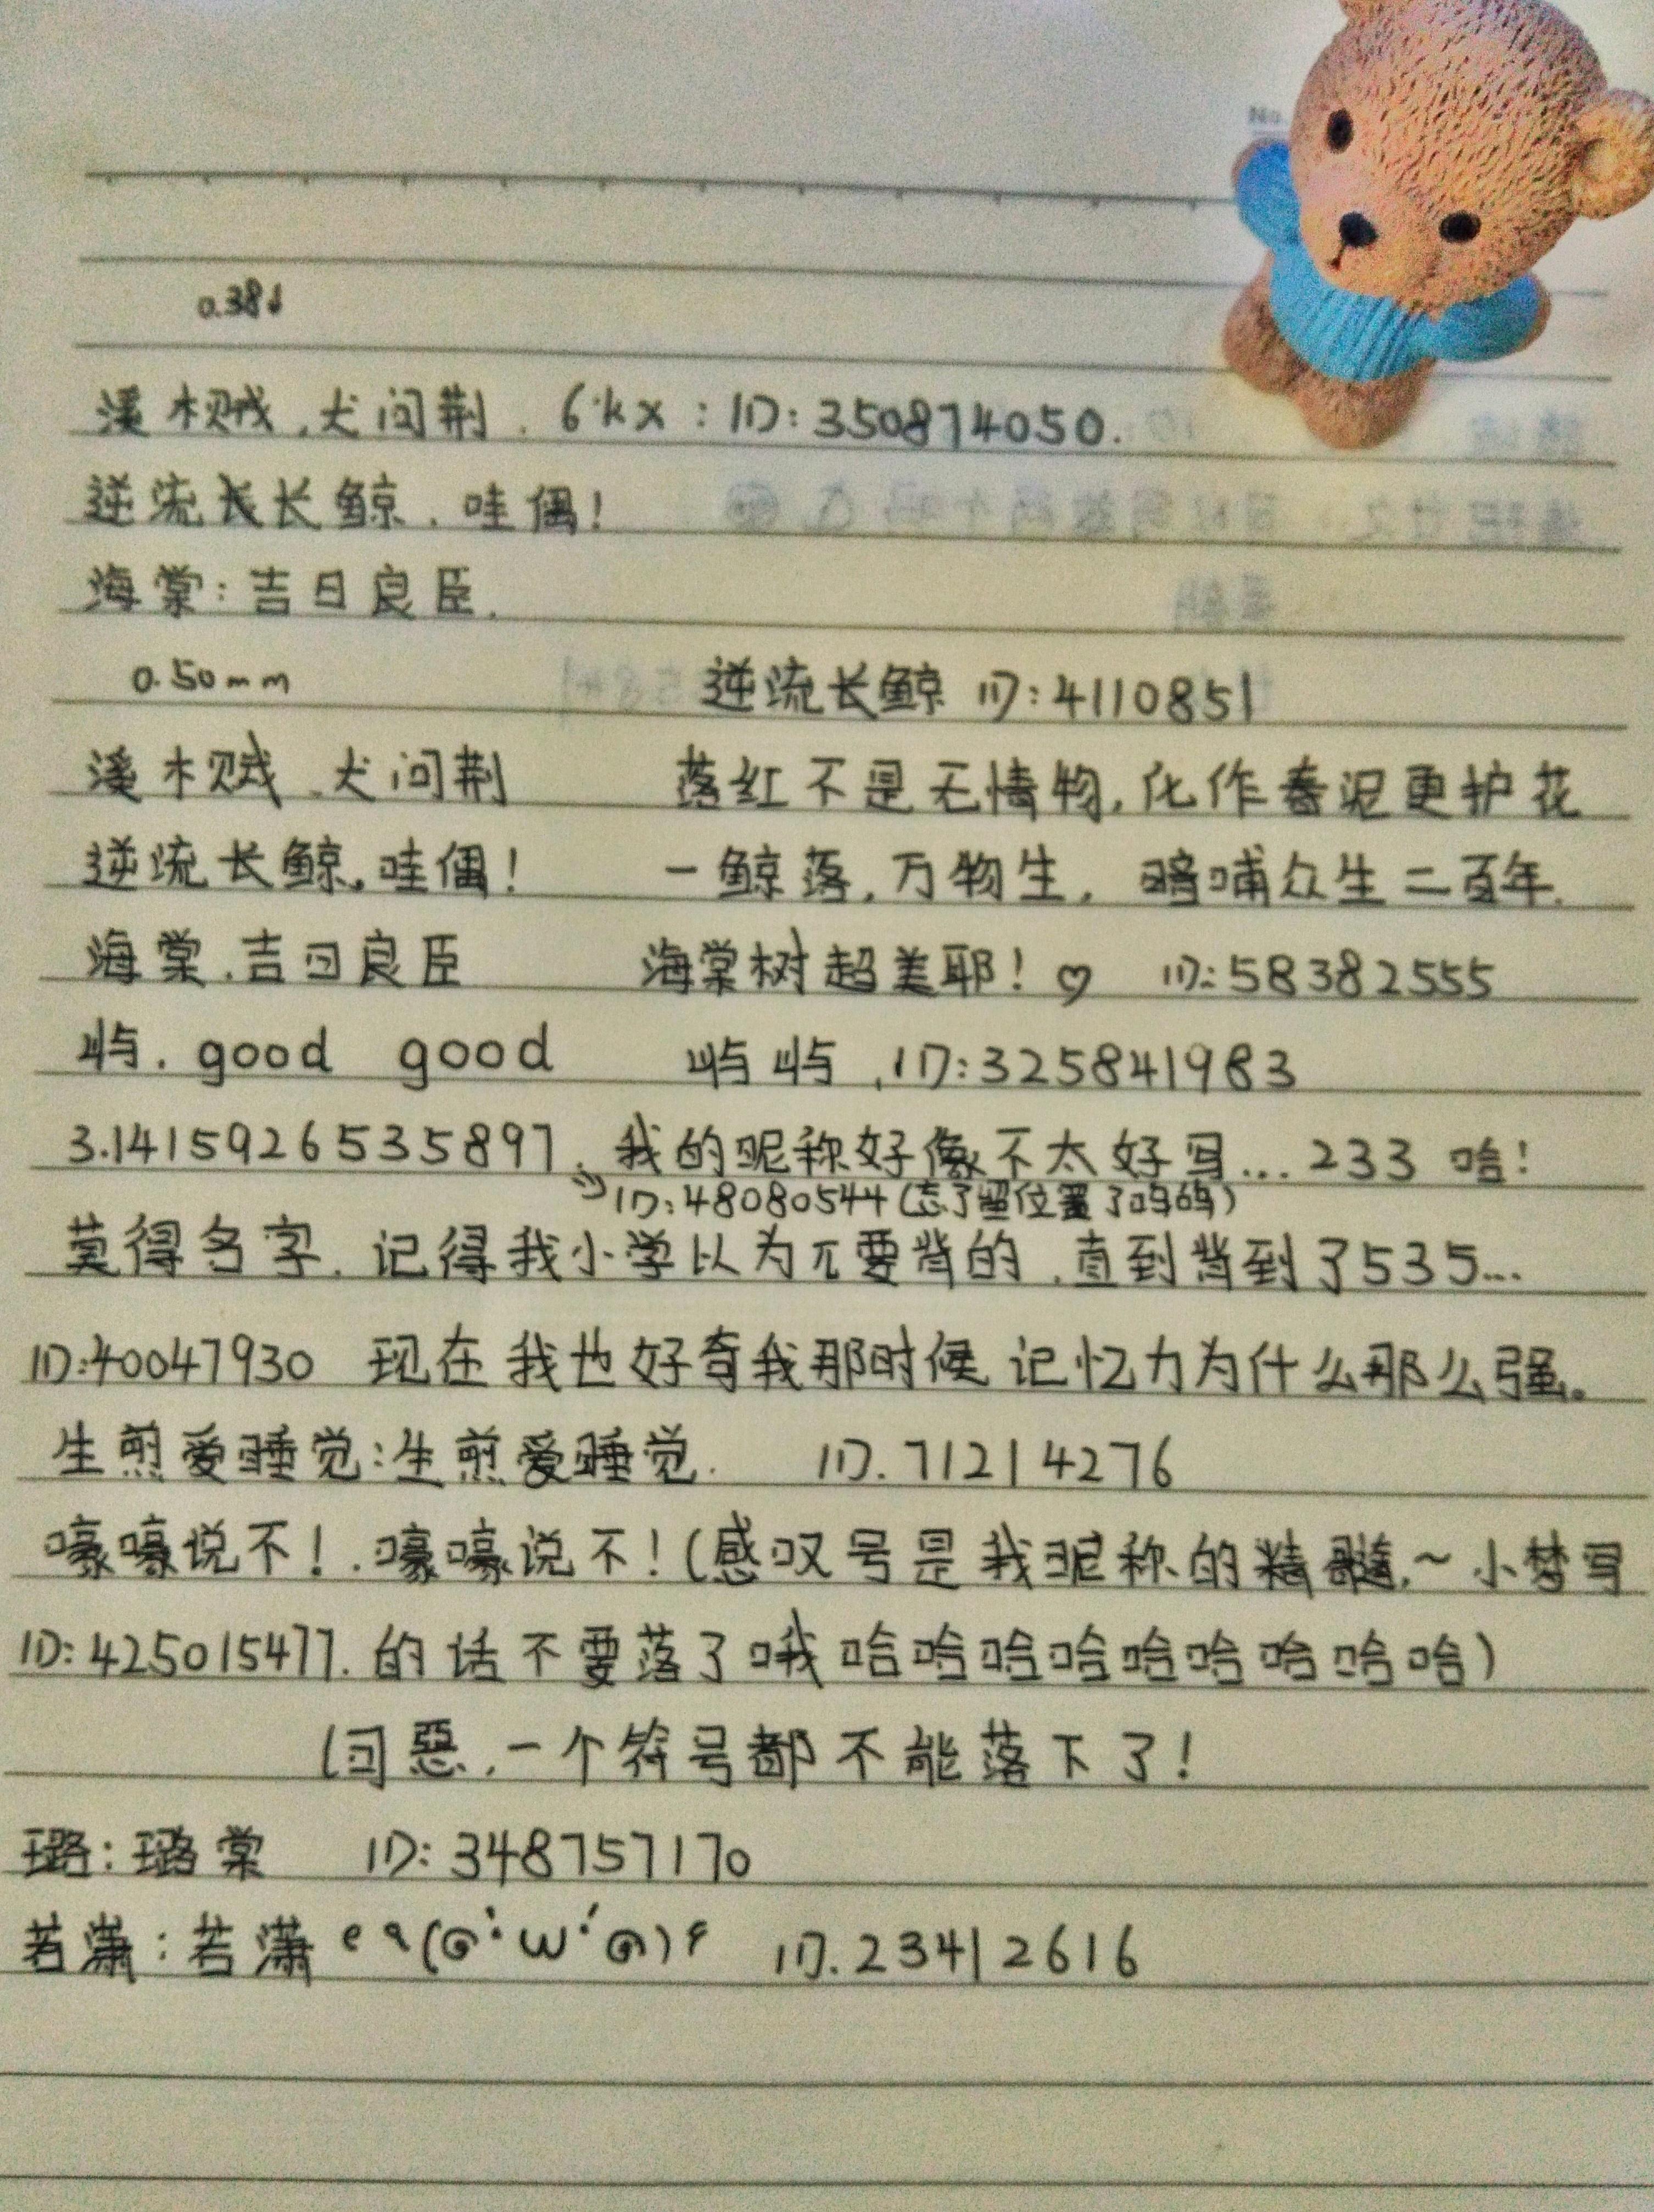 No.
0.38↓
溪木贼,犬问荆.6kx:ID:350874050.
逆流长长鲸.哇偶!
海棠:吉日良臣.
0.50mm 逆流长鲸 ID:4110851
溪木贼.犬问荆 落红不是无情物,化作春泥更护花
逆流长鲸,哇偶! 一鲸落,万物生, 暗哺众生二百年.
海棠.吉日良臣 海棠树超美耶!♡ ID:58382555
屿.good good 屿屿,ID:325841983
3.1415926535897、我的昵称好像不太好写...233 哈!
ID:48080544(忘了留位置了呜呜)
莫得名字.记得我小学以为π要背的.直到背到了535...
ID:40047930 现在我也好奇我那时候记忆力为什么那么强。
生煎爱睡觉:生煎爱睡觉. ID.71214276
嚎嚎说不!.嚎嚎说不!(感叹号是我昵称的精髓,~小梦写
ID:425015477.的话不要落了哦哈哈哈哈哈哈哈哈哈)
(可恶,一个符号都不能落下了!
璐:璐棠 ID:348757170
若潇:若潇 ID.23412616